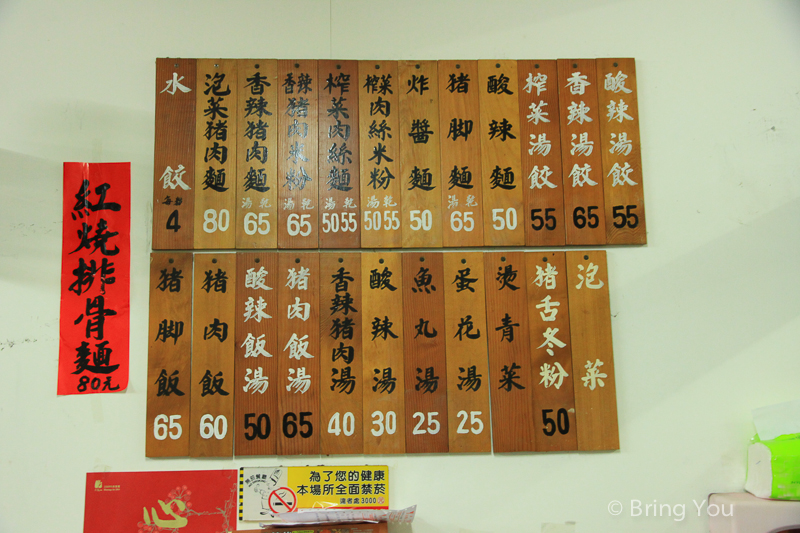 水餃 每粒 4
泡菜豬肉麵 80
香辣豬肉麵 65
香辣豬肉米粉 湯 乾 65
榨菜肉絲麵 湯 乾 50 55
榨菜肉絲米粉 湯 乾 50 55
炸醬麵 50
猪脚麵 湯 乾 65
酸辣麵 50
榨菜湯餃 55
香辣湯餃 65
酸辣湯餃 55
紅燒排骨麵
80元
猪脚飯 65
猪肉飯 60
酸辣飯湯 50
猪肉飯湯 65
香辣猪肉湯 40
酸辣湯 30
魚丸湯 25
蛋花湯 25
燙青菜
猪舌冬粉 50
泡菜
心
為了您的健康
本場所全面禁菸
違者處3000元
© Bring You